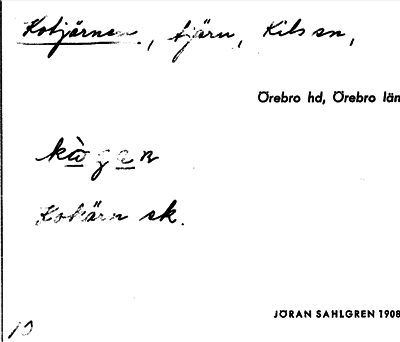 Kotjärnen, tjärn, Kils sn,
Örebro hd, Örebro län
kògen
Kokärn sk.
JÖRAN SAHLGREN 1908
10